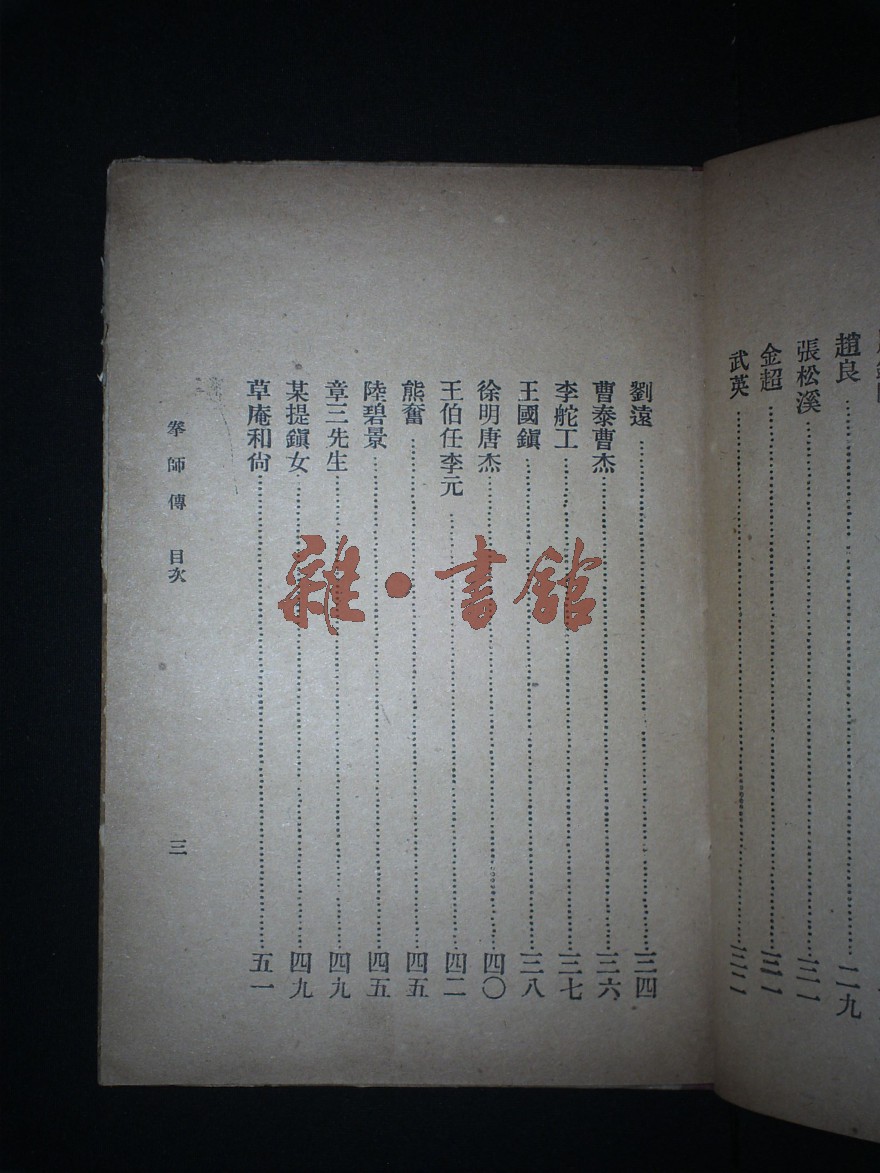 趙良……二九
張松溪……三一
金超……三二
武英……三二
劉遠……三四
曹泰曹杰……三六
李舵工……三七
王國鎭……三八
徐明唐杰……四〇
王伯任李元……四二
熊奮……四五
陸碧景……四五
章三先生……四九
某提鎭女……四九
草庵和尙……五一
拳師傳 目次
三
雜·書館